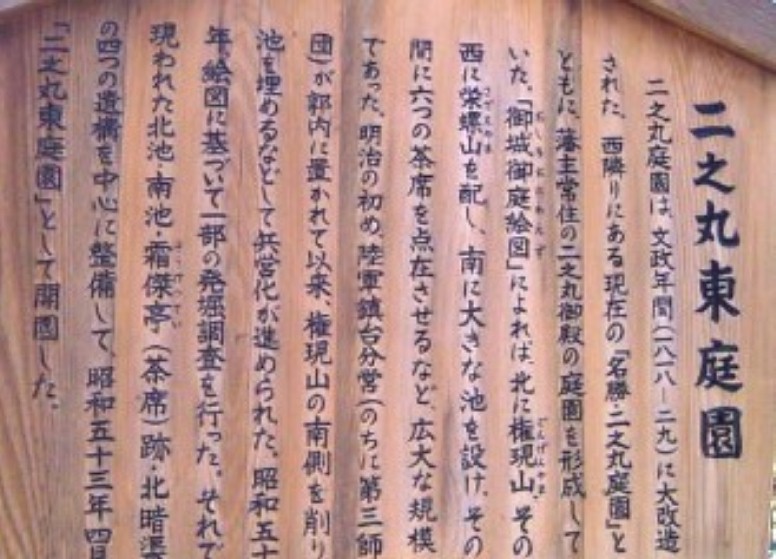 二之丸東庭園
二之丸庭園は、文政年間(一八一八―二九)に大改造
された。西隣りにある現在の「名勝・二之丸庭園」と
ともに、藩主常住の二之丸御殿の庭園を形成して
いた。「御城御庭絵図」によれば、北に権現山、その
西に栄螺山を配し、南に大きな池を設け、その
間に六つの茶席を点在させるなど、広大な規模
であった。明治の初め、陸軍鎮台分営(のちに第三師
団)が郭内に置かれて以来、権現山の南側を削り
池を埋めるなどして兵営化が進められた。昭和五十
年、絵図に基づいて一部の発掘調査を行った。それで
現われた北池・南池・霜傑亭(茶席)跡・北暗渠
の四つの遺構を中心に整備して、昭和五十三年四月
「二之丸東庭園」として開園した。